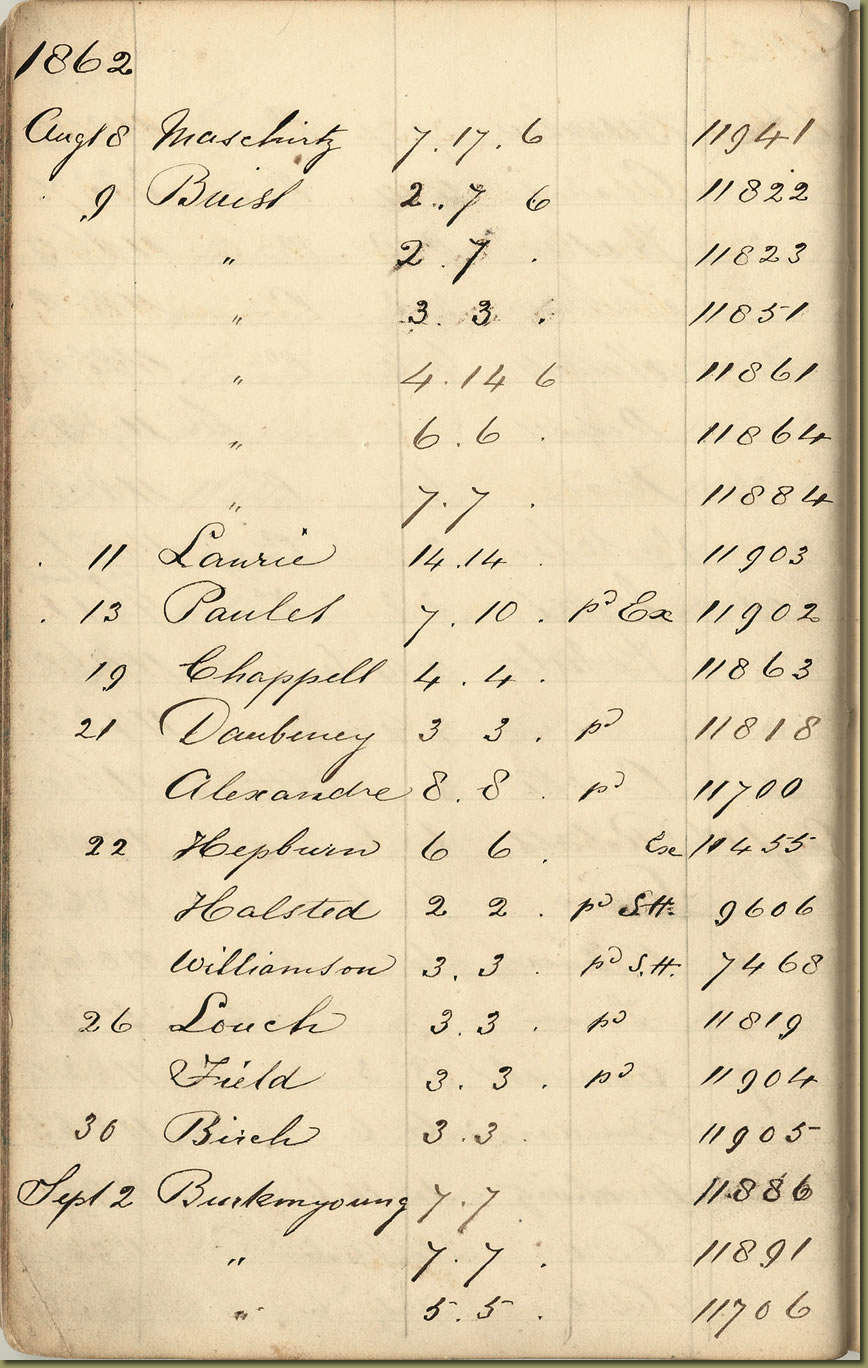 1862
Augt 8 Maschirtz 7.17.6 11941
9 Buist 2.7 6 11822
" 2.7 . 11823
" 3.3 . 11851
" 4.14 6 11861
" 6.6 . 11864
" 7.7 . 11884
11 Lawrie 14.14 . 11903
13 Paulet 7.10 . pd Ex 11902
19 Chappell 4.4 . 11863
21 Daubeney 3 3 . pd 11818
Alexandre 8.8 . pd 11700
22 Hepburn 6 6 . Ex 11455
Halsted 2 2 . pd S.H. 9606
Williamson 3.3 . pd S.H. 7468
26 Louch 3.3 . pd 11819
Field 3.3 . pd 11904
30 Birch 3.3 . 11905
Sept 2 Burkinyoung 7.7 . 11886
" 7.7 . 11891
" 5.5 . 11706